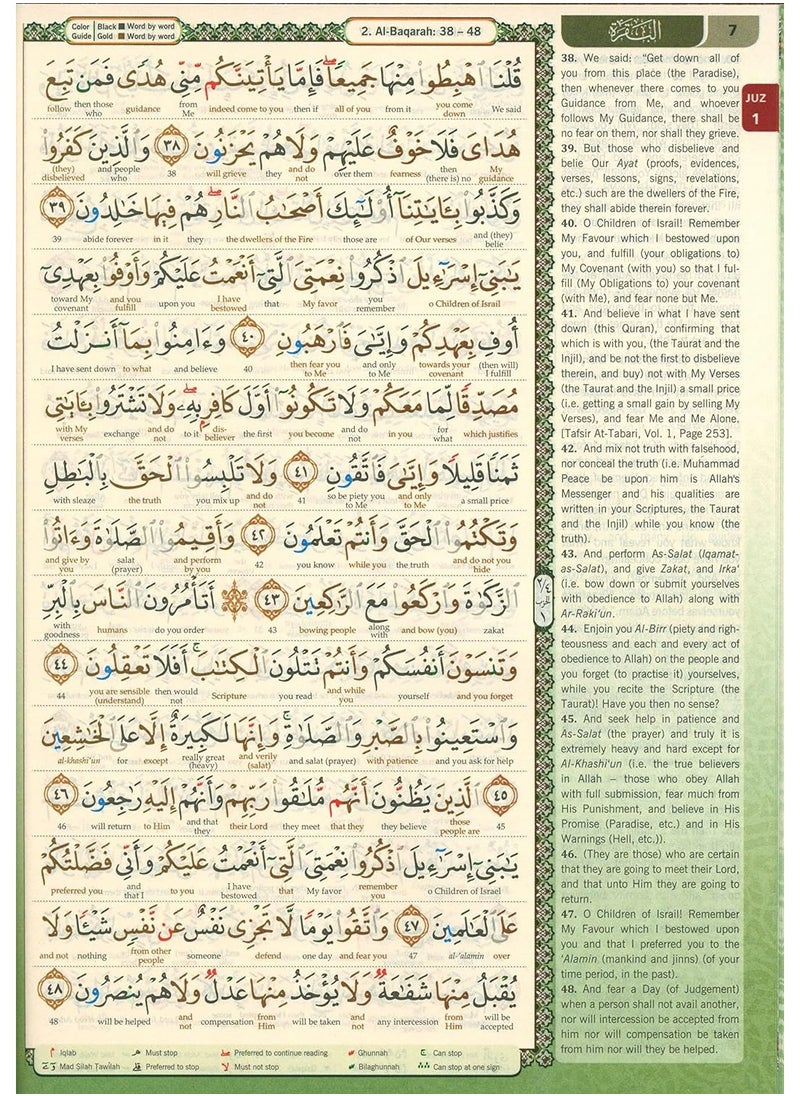 Color Guide
Black Word by word
Gold Word by word
2. Al-Baqarah: 38 – 48
البقرة
7
JUZ 1
قُلْنَا اهْبِطُوا مِنْهَا جَمِيعًا فَإِمَّا يَأْتِيَنَّكُم مِّنِّي هُدًى فَمَن تَبِعَ
We said you come down from it all of you then if indeed come to you from Me guidance then those who follow
هُدَايَ فَلَا خَوْفٌ عَلَيْهِمْ وَلَا هُمْ يَحْزَنُونَ ٣٨ وَالَّذِينَ كَفَرُوا
My guidance then (there is) no fearness over them and do not they will grieve 38 and people who (they) disbelieved
وَكَذَّبُوا بِـَٔايَـٰتِنَآ أُولَـٰٓئِكَ أَصْحَـٰبُ النَّارِ ۖ هُمْ فِيهَا خَـٰلِدُونَ ٣٩
and (they) belie of Our verses those are the dwellers of the Fire they in it abide forever 39
يَـٰبَنِىٓ إِسْرَٰٓءِيلَ اذْكُرُوا نِعْمَتِىَ الَّتِىٓ أَنْعَمْتُ عَلَيْكُمْ وَأَوْفُوا بِعَهْدِىٓ
o Children of Israil you remember My favor that I have bestowed upon you and you fulfill toward My covenant
أُوفِ بِعَهْدِكُمْ وَإِيَّـٰىَ فَارْهَبُونِ ٤٠ وَءَامِنُوا بِمَآ أَنزَلْتُ
(then will) I fulfill towards your covenant and only to Me then fear you to Me 40 and believe to what I have sent down
مُصَدِّقًا لِّمَا مَعَكُمْ وَلَا تَكُونُوٓا أَوَّلَ كَافِرٍۭ بِهِۦ ۖ وَلَا تَشْتَرُوا بِـَٔايَـٰتِى
which justifies for what in you and do not you become the first dis-believer to it and do not exchange with My verses
ثَمَنًا قَلِيلًا وَإِيَّـٰىَ فَاتَّقُونِ ٤١ وَلَا تَلْبِسُوا الْحَقَّ بِالْبَـٰطِلِ
a small price and only to Me so be piety you to Me 41 and do not you mix up the truth with sleaze
وَتَكْتُمُوا الْحَقَّ وَأَنتُمْ تَعْلَمُونَ ٤٢ وَأَقِيمُوا الصَّلَوٰةَ وَءَاتُوا
and do not you hide the truth while you you know 42 and perform by you salat (prayer) and give by you
الزَّكَوٰةَ وَارْكَعُوا مَعَ الرَّٰكِعِينَ ٤٣ ۞ أَتَأْمُرُونَ النَّاسَ بِالْبِرِّ
zakat and bow (you) along with bowing people 43 do you order humans with goodness
وَتَنسَوْنَ أَنفُسَكُمْ وَأَنتُمْ تَتْلُونَ الْكِتَـٰبَ ۚ أَفَلَا تَعْقِلُونَ ٤٤
and you forget yourself and while you you read Scripture then would not you are sensible (understand) 44
وَاسْتَعِينُوا بِالصَّبْرِ وَالصَّلَوٰةِ ۚ وَإِنَّهَا لَكَبِيرَةٌ إِلَّا عَلَى الْخَـٰشِعِينَ
and you ask for help with patience and salat (prayer) and verily (salat) really great (heavy) except for al-khashi'un
٤٥ الَّذِينَ يَظُنُّونَ أَنَّهُم مُّلَـٰقُوا رَبِّهِمْ وَأَنَّهُمْ إِلَيْهِ رَٰجِعُونَ ٤٦
45 those people are they believe that they they meet their Lord and that they to Him will return 46
يَـٰبَنِىٓ إِسْرَٰٓءِيلَ اذْكُرُوا نِعْمَتِىَ الَّتِىٓ أَنْعَمْتُ عَلَيْكُمْ وَأَنِّى فَضَّلْتُكُمْ
o Children of Israel you remember My favor that I have bestowed to you and that I preferred you
عَلَى الْعَـٰلَمِينَ ٤٧ وَاتَّقُوا يَوْمًا لَّا تَجْزِى نَفْسٌ عَن نَّفْسٍ شَيْـًٔا وَلَا
over al-'alamin 47 and fear you one day defend someone from other people nothing and not
يُقْبَلُ مِنْهَا شَفَـٰعَةٌ وَلَا يُؤْخَذُ مِنْهَا عَدْلٌ وَلَا هُمْ يُنصَرُونَ ٤٨
will be accepted from Him any intercession and not will be taken from Him compensation and not will be helped 48
38. We said: "Get down all of
you from this place (the Paradise),
then whenever there comes to you
Guidance from Me, and whoever
follows My Guidance, there shall be
no fear on them, nor shall they grieve.
39. But those who disbelieve and
belie Our Ayat (proofs, evidences,
verses, lessons, signs, revelations,
etc.) such are the dwellers of the Fire,
they shall abide therein forever.
40. O Children of Israil! Remember
My Favour which I bestowed upon
you, and fulfill (your obligations to)
My Covenant (with you) so that I ful-
fill (My Obligations to) your covenant
(with Me), and fear none but Me.
41. And believe in what I have sent
down (this Quran), confirming that
which is with you, (the Taurat and the
Injil), and be not the first to disbelieve
therein, and buy) not with My Verses
(the Taurat and the Injil) a small price
(i.e. getting a small gain by selling My
Verses), and fear Me and Me Alone.
[Tafsir At-Tabari, Vol. 1, Page 253].
42. And mix not truth with falsehood,
nor conceal the truth (i.e. Muhammad
Peace be upon him is Allah's
Messenger and his qualities are
written in your Scriptures, the Taurat
and the Injil) while you know (the
truth).
43. And perform As-Salat (Iqamat-
as-Salat), and give Zakat, and Irka'
(i.e. bow down or submit yourselves
with obedience to Allah) along with
Ar-Raki'un.
44. Enjoin you Al-Birr (piety and righ-
teousness and each and every act of
obedience to Allah) on the people and
you forget (to practise it) yourselves,
while you recite the Scripture (the
Taurat)! Have you then no sense?
45. And seek help in patience and
As-Salat (the prayer) and truly it is
extremely heavy and hard except for
Al-Khashi'un (i.e. the true believers
in Allah – those who obey Allah
with full submission, fear much from
His Punishment, and believe in His
Promise (Paradise, etc.) and in His
Warnings (Hell, etc.)).
46. (They are those) who are certain
that they are going to meet their Lord,
and that unto Him they are going to
return.
47. O Children of Israil! Remember
My Favour which I bestowed upon
you and that I preferred you to the
'Alamin (mankind and jinns) (of your
time period, in the past).
48. And fear a Day (of Judgement)
when a person shall not avail another,
nor will intercession be accepted from
him nor will compensation be taken
from him nor will they be helped.
Iqlab Must stop Preferred to continue reading Ghunnah Can stop
Mad Silah Tawilah Preferred to stop Must not stop Bilaghunnah Can stop at one sign